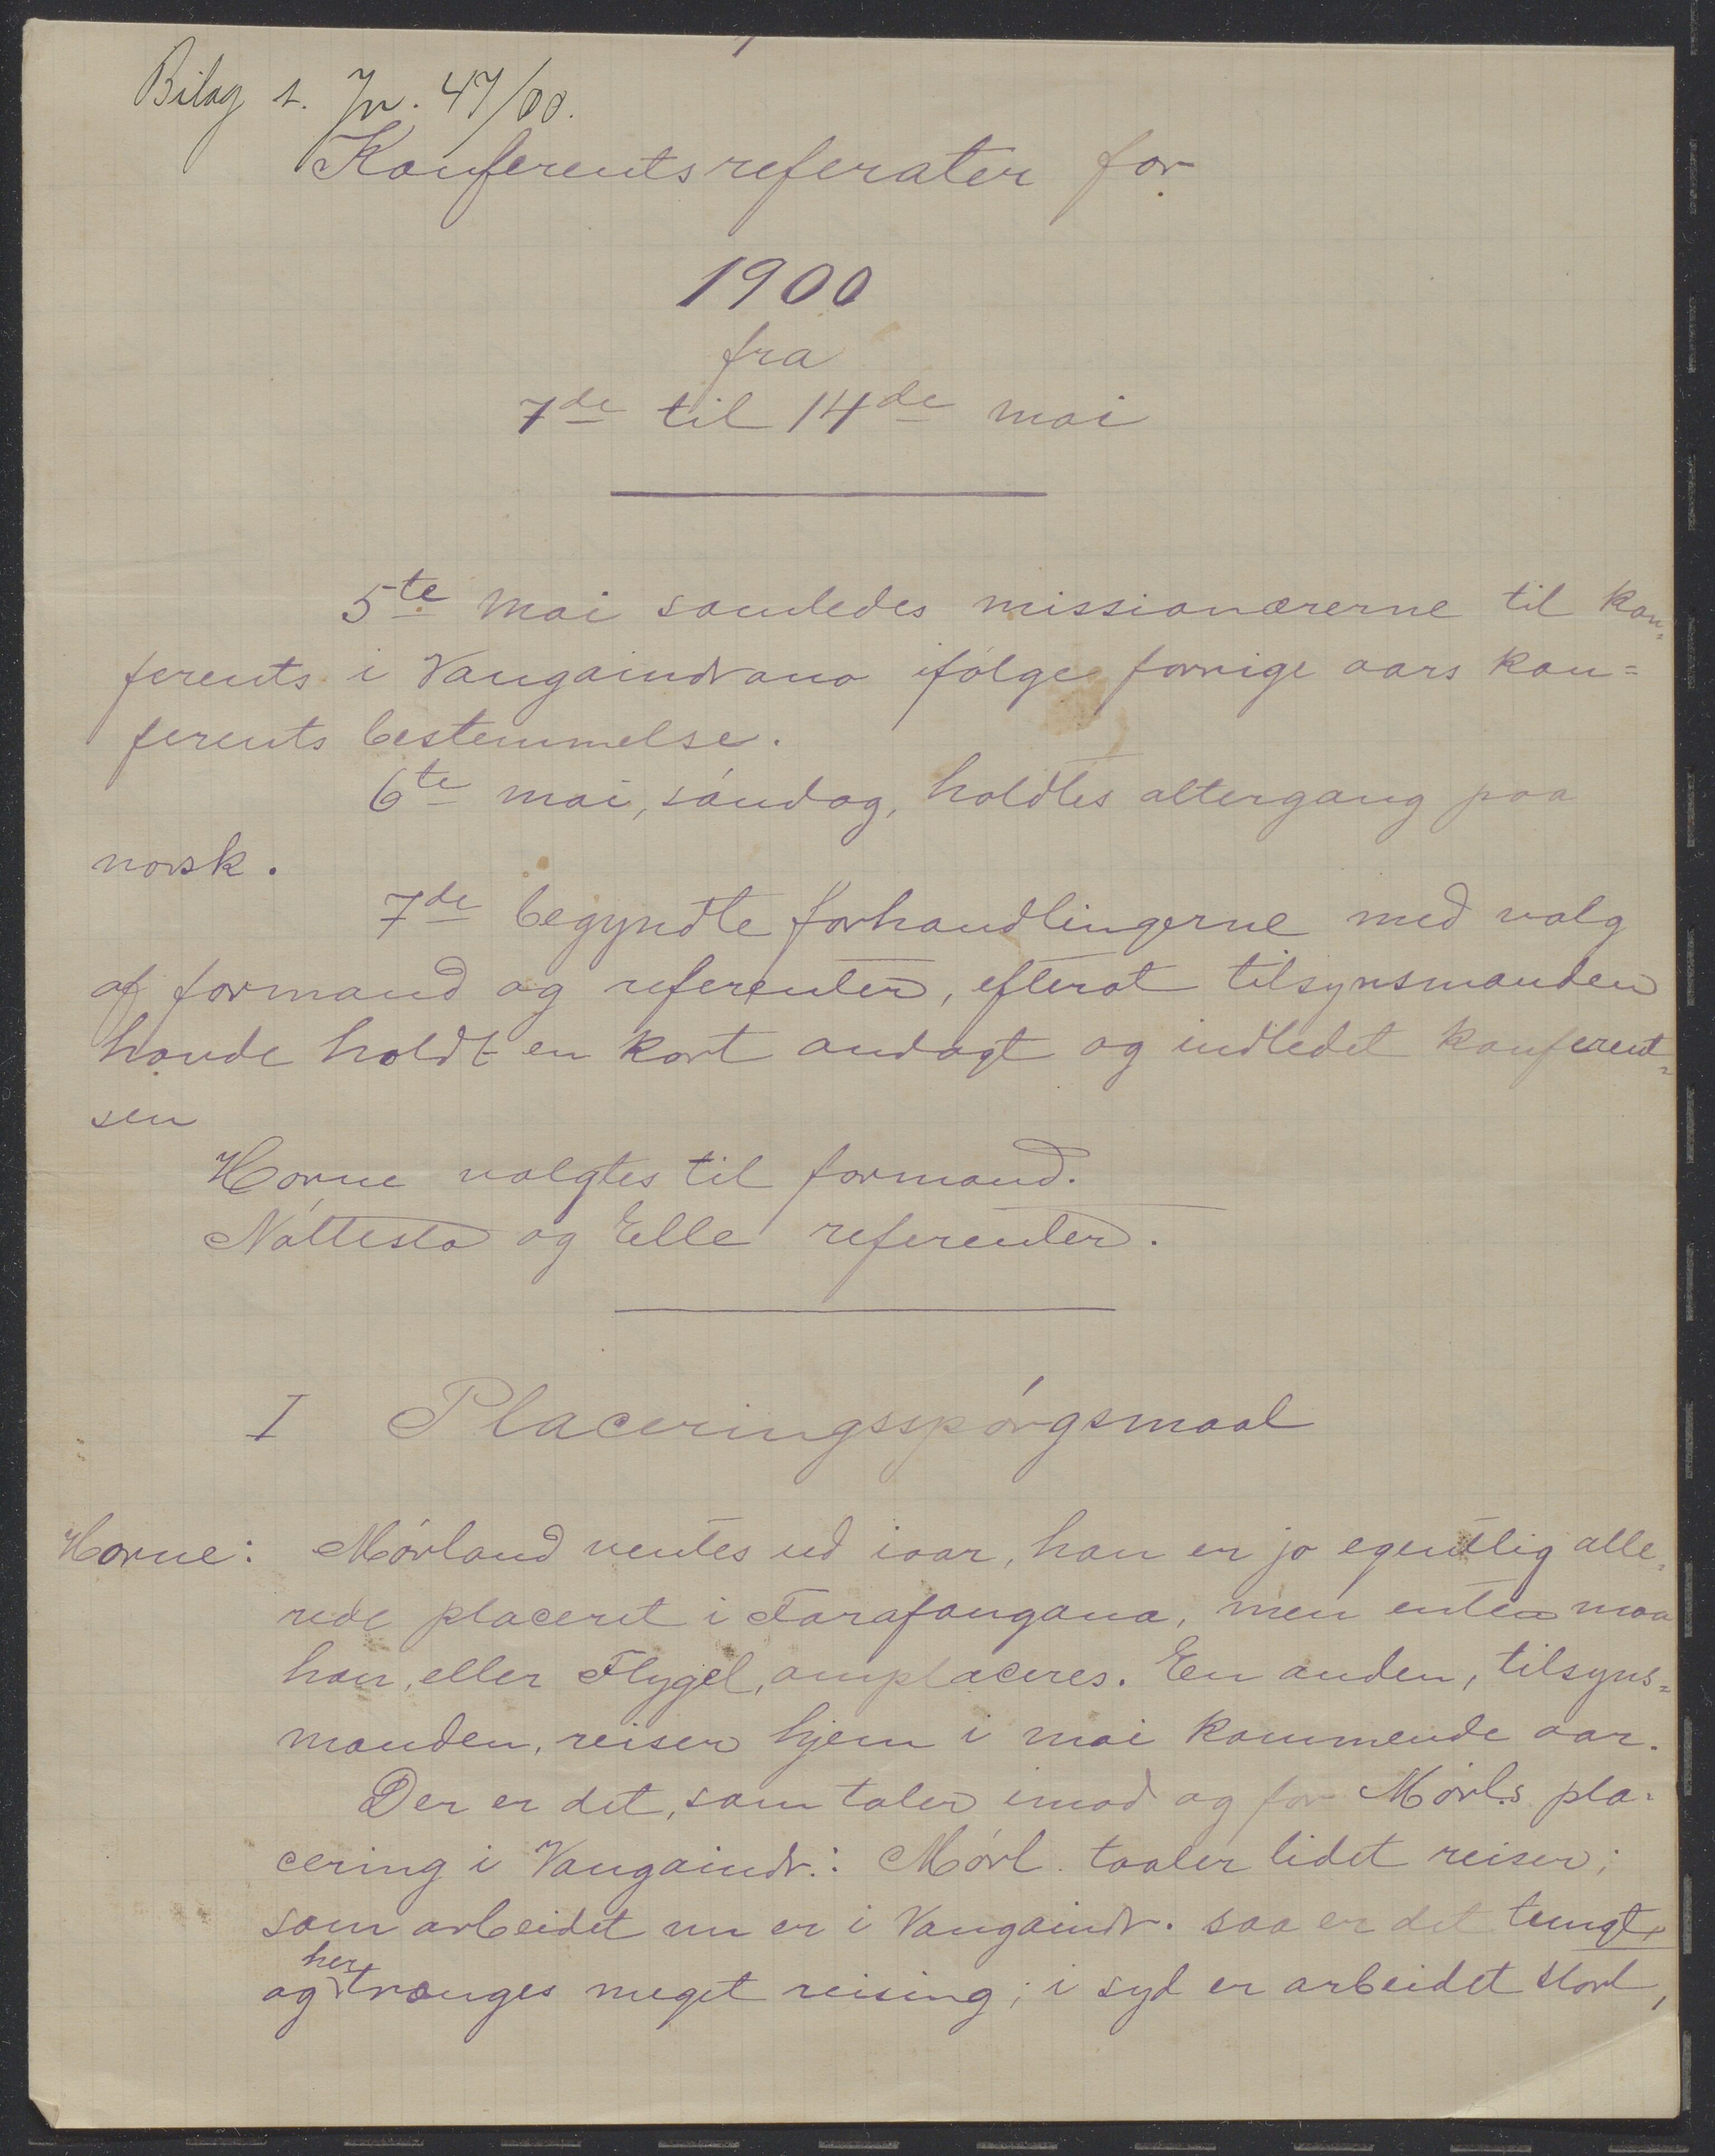 Bilag t. Jn. 47/00.
Konferentsreferater for
1900
fra
7de til 14de mai
5te mai samledes missionærerne til kon=
ferents i Vangaindrano ifølge forrige aars kon=
ferents bestemmelse.
6te mai, søndag, holdtes altergang paa
norsk.
7de begyndte forhandlingerne med valg
af formand og referenter, efterat tilsynsmanden
havde holdt en kort andagt og indledet konferent=
sen
Horne valgtes til formand.
Nøttestø og Elle referenter.
I Placeringsspørgsmaal
Horne: Mørland ventes ud iaar, han er jo egentlig alle=
rede placeret i Farafangana, men enten maa
han, eller Flygel, omplaceres. En anden, tilsyns=
manden, reiser hjem i mai kommende aar.
Der er det, som taler imod og for Mørl.s pla=
cering i Vangaindr.: Mørl. taaler lidet reiser;
som arbeidet nu er i Vangaindr. saa er det tungt
og her trænges meget reising; i syd er arbeidet stort,